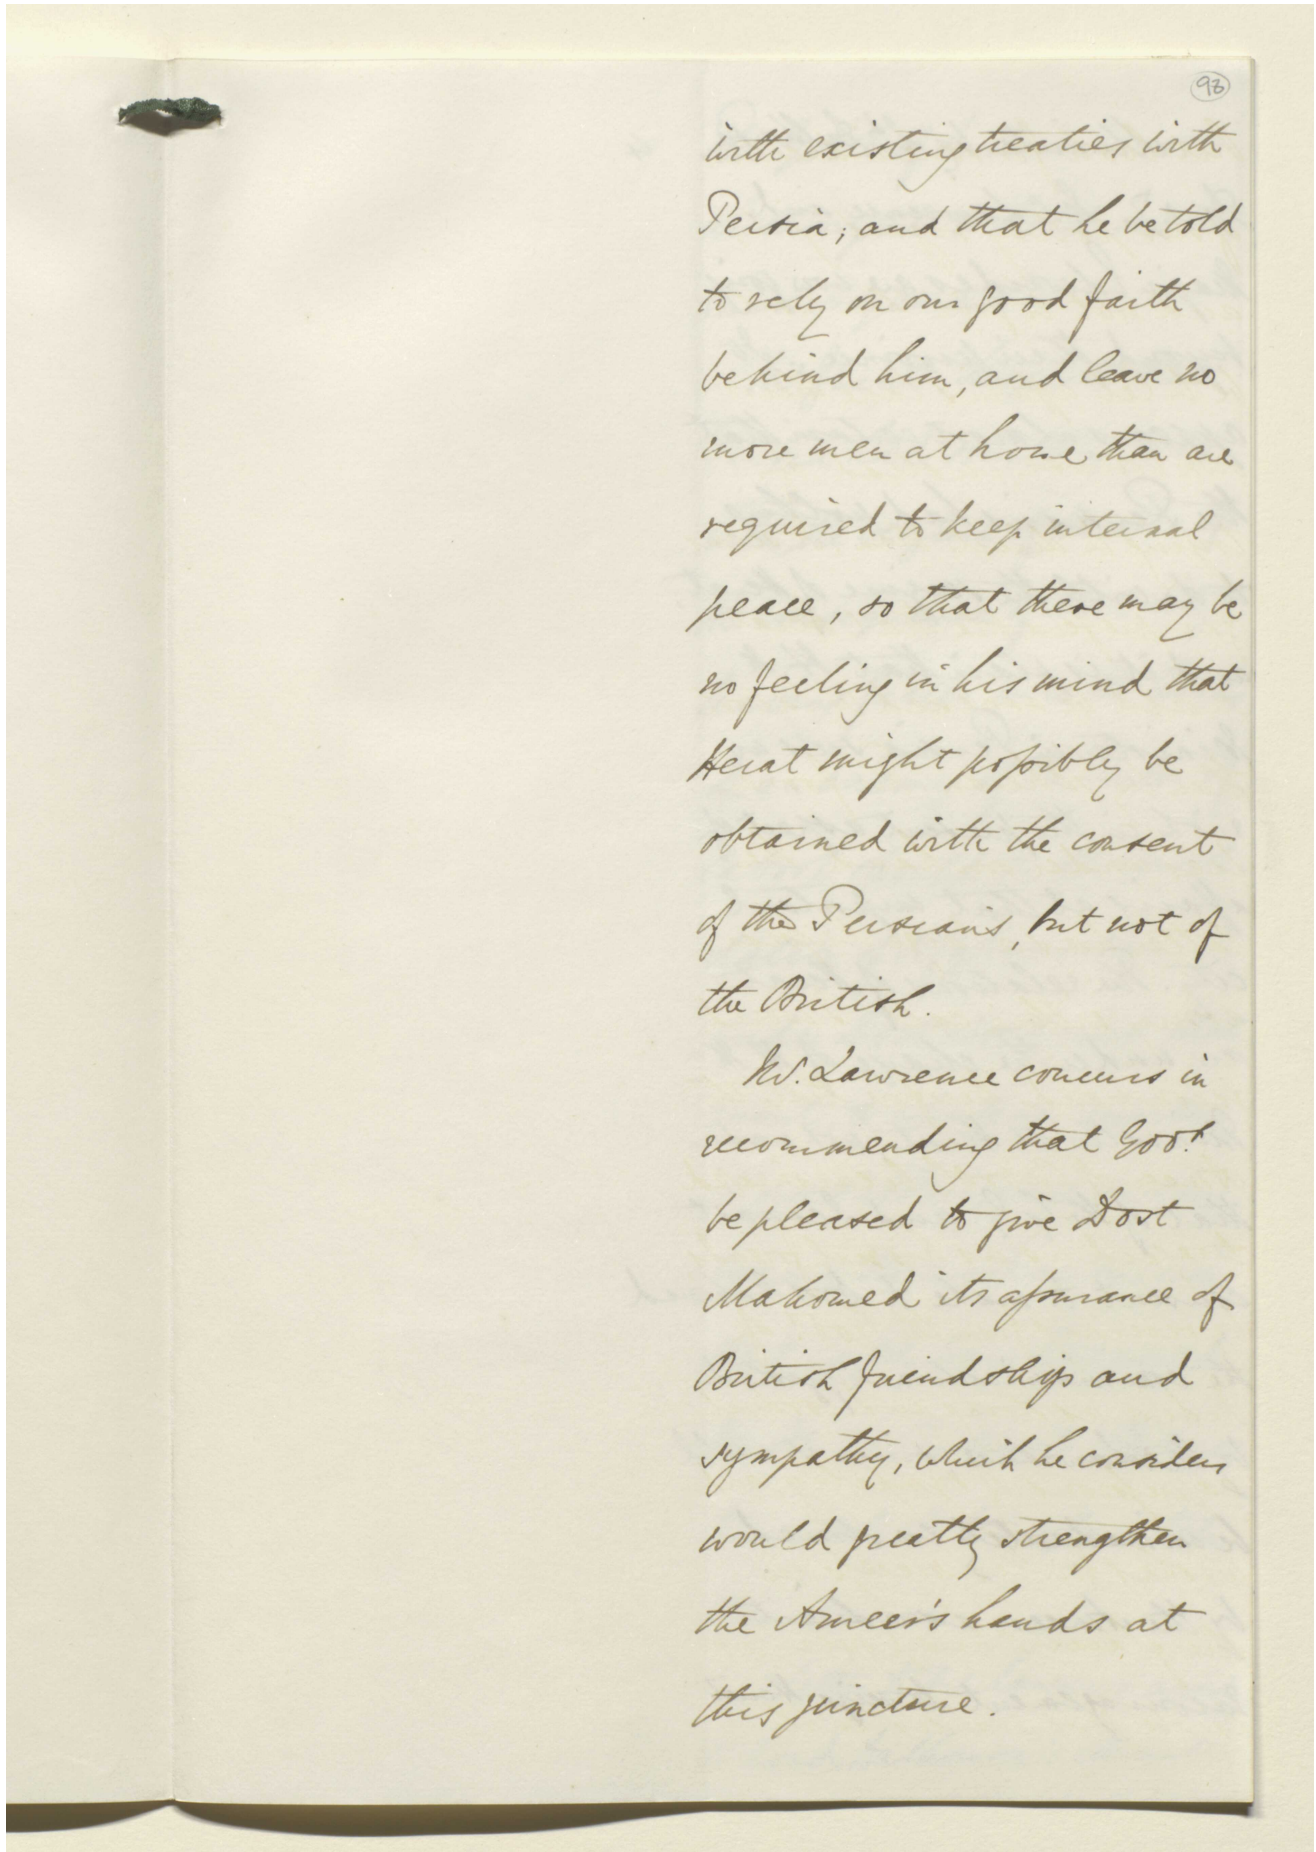 93
with existing treaties with
Persia; and that he be told
to rely on our good faith
behind him, and leave no
more men at home than are
required to keep internal
peace, so that there may be
no feeling in his mind that
Herat might possibly be
obtained with the consent
of the Persians, but not of
the British.
Mr. Lawrence concurs in
recommending that Govt.
be pleased to give Dost
Mahomed its assurance of
British friendship and
sympathy, which he considers
would greatly strengthen
the Ameer's hands at
this juncture.